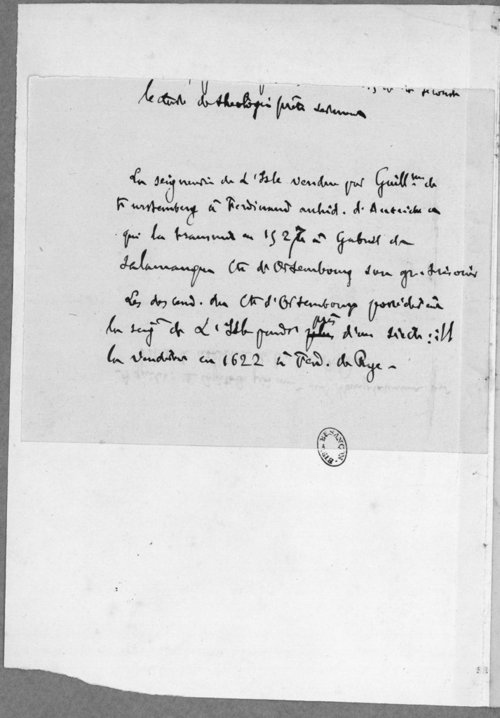 le étude de théologie prêta serment
La seigneurie de L'Isle vendue par Guill.me de
Furstemberg à Ferdinand archid. d'Autriche
qui la transmit en 152 à Gabriel de
Salamanque Cte d'Ortembourg son gr. trésorier
Les descend. du Cte d'Ortembourg possédèrent
la seigie de L'Isle pendt près d'un siècle : ils
la vendirent en 1622 à Ferd. de Rye.
BESANÇON